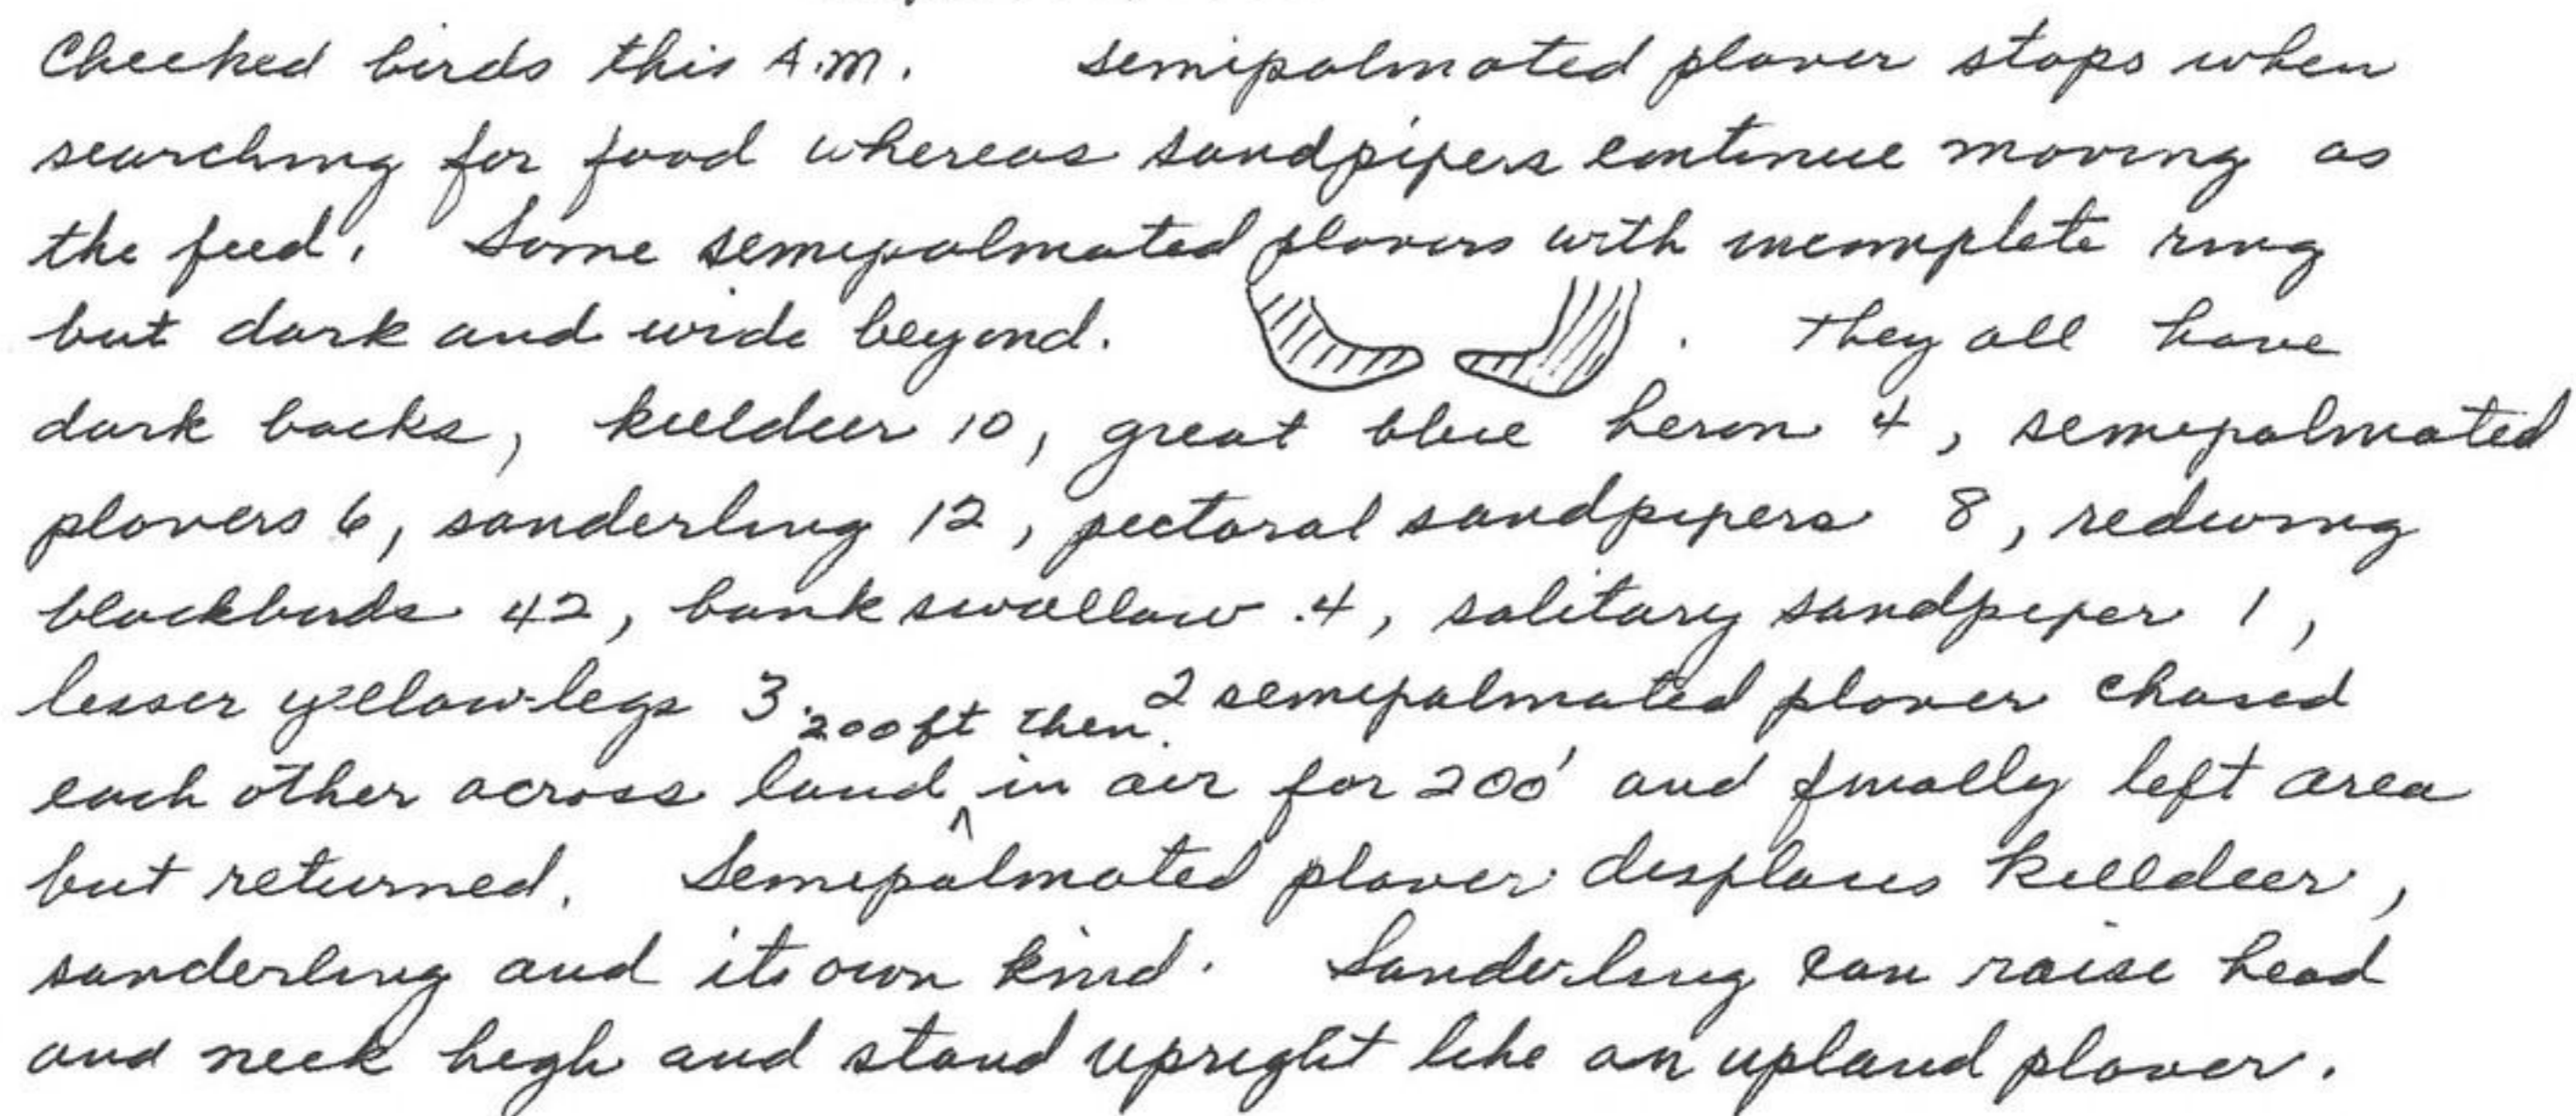 Checked birds this A.M. semipalmated plover stops when
searching for food whereas sandpipers continue moving as
the feed. Some semipalmated plovers with incomplete ring
but dark and wide beyond. . They all have
dark backs, killdeer 10, great blue heron 4, semipalmated
plovers 6, sanderling 12, pectoral sandpipers 8, redwing
blackbirds 42, bank swallow 4, solitary sandpiper 1,
lesser yellow-legs 3. 2 semipalmated plover chased
200 ft then
each other across land ^ in air for 200' and finally left area
but returned. Semipalmated plover displaces killdeer,
sanderling and its own kind. Sanderling can raise head
and neck high and stand upright like an upland plover.